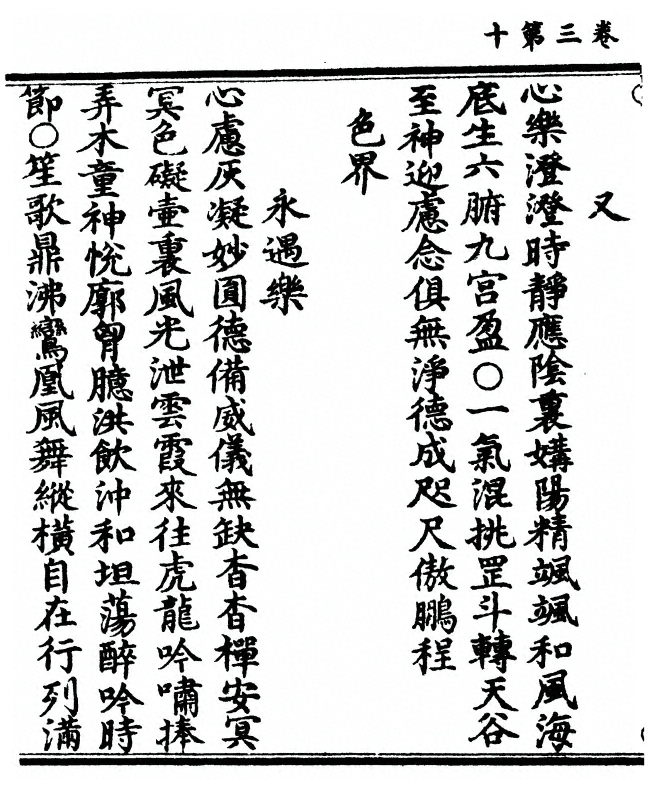 十第三卷
又
心樂澄澄時靜應陰裏媾陽精颯颯和風海
底生六腑九宮盈○一氣混挑罡斗轉天谷
至神迎慮念俱無淨德成咫尺傲鵬程
色界
永遇樂
心慮灰凝妙圓德備威儀無缺杳杳樿安冥
冥色礙壷裏風光泄雲霞來往虎龍吟嘯捧
弄木童神悅廓胷臆洪飲沖和坦蕩醉吟時
節○笙歌鼎沸鸞凰風舞縱橫自在行列滿